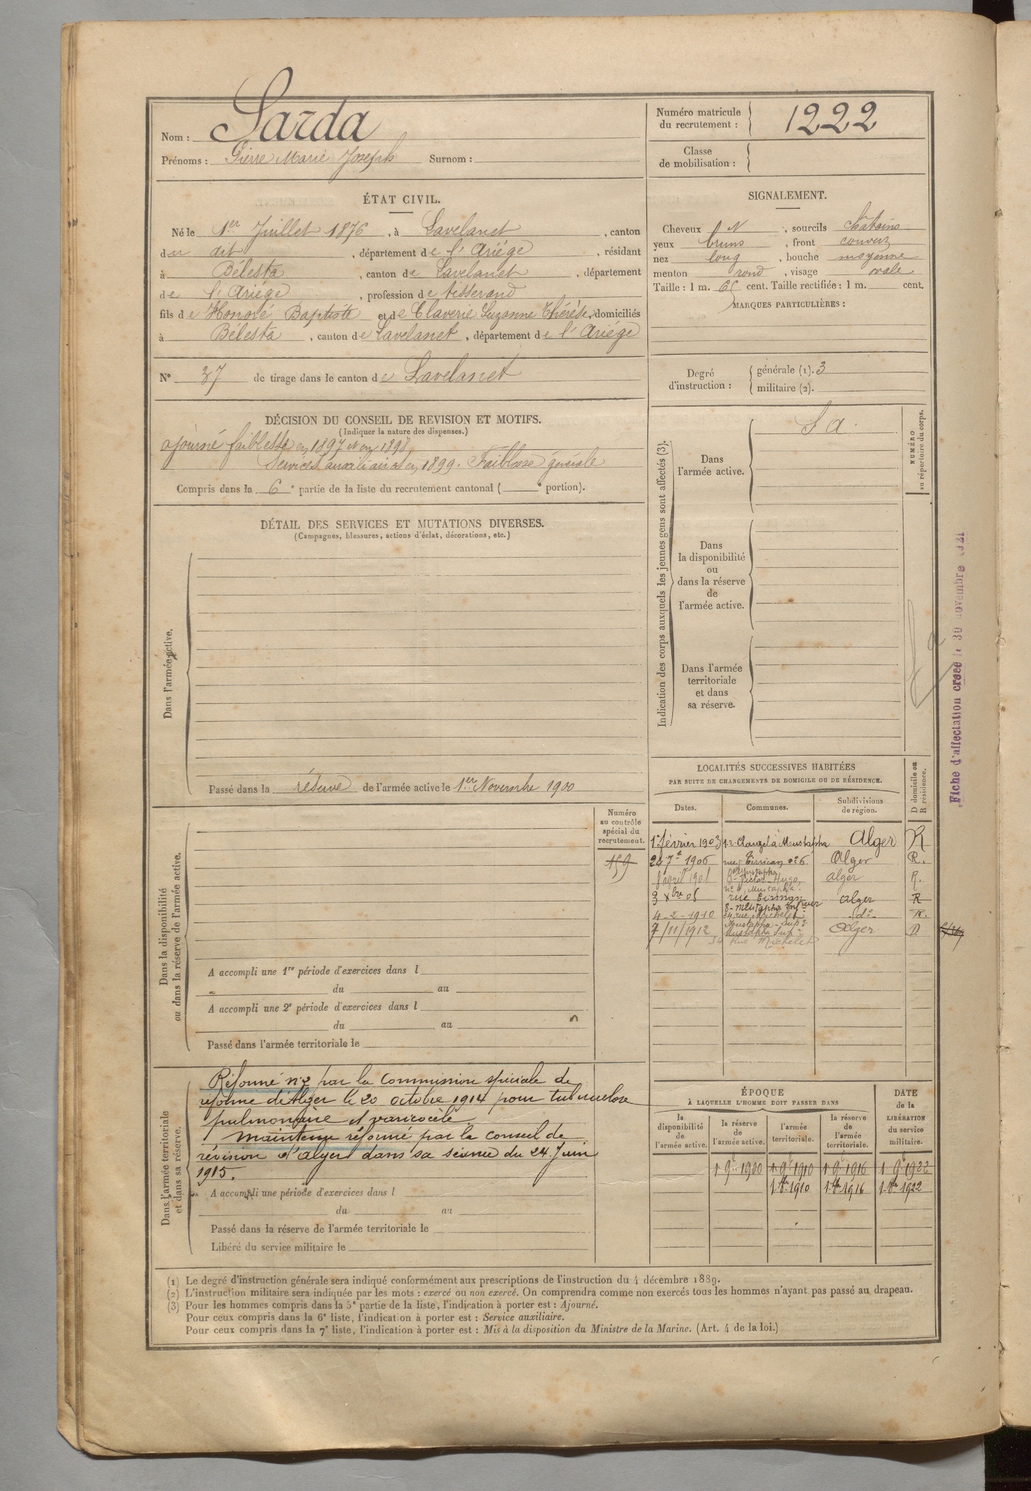 Nom : Sarda
Prénoms : Pierre Marie Joseph Surnom :
Numéro matricule du recrutement : 1222
Classe de mobilisation :
ÉTAT CIVIL.
Né le 1er Juillet 1876, à Lavelanet, canton
du dit, département de l'Ariége, résidant
à Bélesta, canton de Lavelanet, département
de l'Ariége, profession de tisserand
fils de Honoré Baptiste et de Claverie Suzanne Thérèse, domiciliés
à Bélesta, canton de Lavelanet, département de l'Ariége
SIGNALEMENT.
Cheveux N, sourcils chatains
yeux bruns, front couvert
nez long, bouche moyenne
menton rond, visage ovale
Taille : 1 m. 65 cent. Taille rectifiée : 1 m. cent.
MARQUES PARTICULIÈRES :
N° 37 de tirage dans le canton de Lavelanet
Degré d'instruction : générale (1). 3
militaire (2).
DÉCISION DU CONSEIL DE REVISION ET MOTIFS.
(Indiquer la nature des dispenses.)
ajourné faiblesse en 1897 et en 1898
Services auxiliaires en 1899. Faiblesse générale
Compris dans la 6e partie de la liste du recrutement cantonal ( e portion).
DÉTAIL DES SERVICES ET MUTATIONS DIVERSES.
(Campagnes, blessures, actions d'éclat, décorations, etc.)
Dans l'armée active.
Passé dans la réserve de l'armée active le 1er Novembre 1900
Indication des corps auxquels les jeunes gens sont affectés (3).
Dans l'armée active.
S a.
Dans la disponibilité ou dans la réserve de l'armée active.
Dans l'armée territoriale et dans sa réserve.
NUMÉRO au répertoire du corps.
Fiche d'affectation créée le 30 novembre 1921
Dans la disponibilité ou dans la réserve de l'armée active.
Numéro au contrôle spécial du recrutement.
159
A accompli une 1re période d'exercices dans l
du au
A accompli une 2e période d'exercices dans l
du au
Passé dans l'armée territoriale le
LOCALITÉS SUCCESSIVES HABITÉES
PAR SUITE DE CHANGEMENTS DE DOMICILE OU DE RÉSIDENCE.
Dates. Communes. Subdivisions de région. D domicile ou R résidence.
1er février 1903 Clauzel à Mustapha Alger R
1906 Alger R.
1908 Victor Hugo, Mustapha alger R.
alger R
4-2-1910 rue Michelet do R.
7/11/1912 Mustapha Sup. Alger D
rue Michelet
Dans l'armée territoriale et dans sa réserve.
Réformé n°2 par la Commission spéciale de
réforme d'Alger le 20 octobre 1914 pour tuberculose
pulmonaire et varicocèle
Maintenu réformé par le Conseil de
révision d'Alger dans sa séance du 24 Juin
1915.
A accompli une période d'exercices dans l
du au
Passé dans la réserve de l'armée territoriale le
Libéré du service militaire le
ÉPOQUE
À LAQUELLE L'HOMME DOIT PASSER DANS
la disponibilité de l'armée active. la réserve de l'armée active. l'armée territoriale. la réserve de l'armée territoriale. DATE de la LIBÉRATION du service militaire.
1 9e 1900 1 9e 1910 1 9e 1916 1 9e 1922
1 8e 1910 1 8e 1916 1 8e 1922
(1) Le degré d'instruction générale sera indiqué conformément aux prescriptions de l'instruction du 4 décembre 1889.
(2) L'instruction militaire sera indiquée par les mots : exercé ou non exercé. On comprendra comme non exercés tous les hommes n'ayant pas passé au drapeau.
(3) Pour les hommes compris dans la 5e partie de la liste, l'indication à porter est : Ajourné.
Pour ceux compris dans la 6e liste, l'indication à porter est : Service auxiliaire.
Pour ceux compris dans la 7e liste, l'indication à porter est : Mis à la disposition du Ministre de la Marine. (Art. 4 de la loi.)